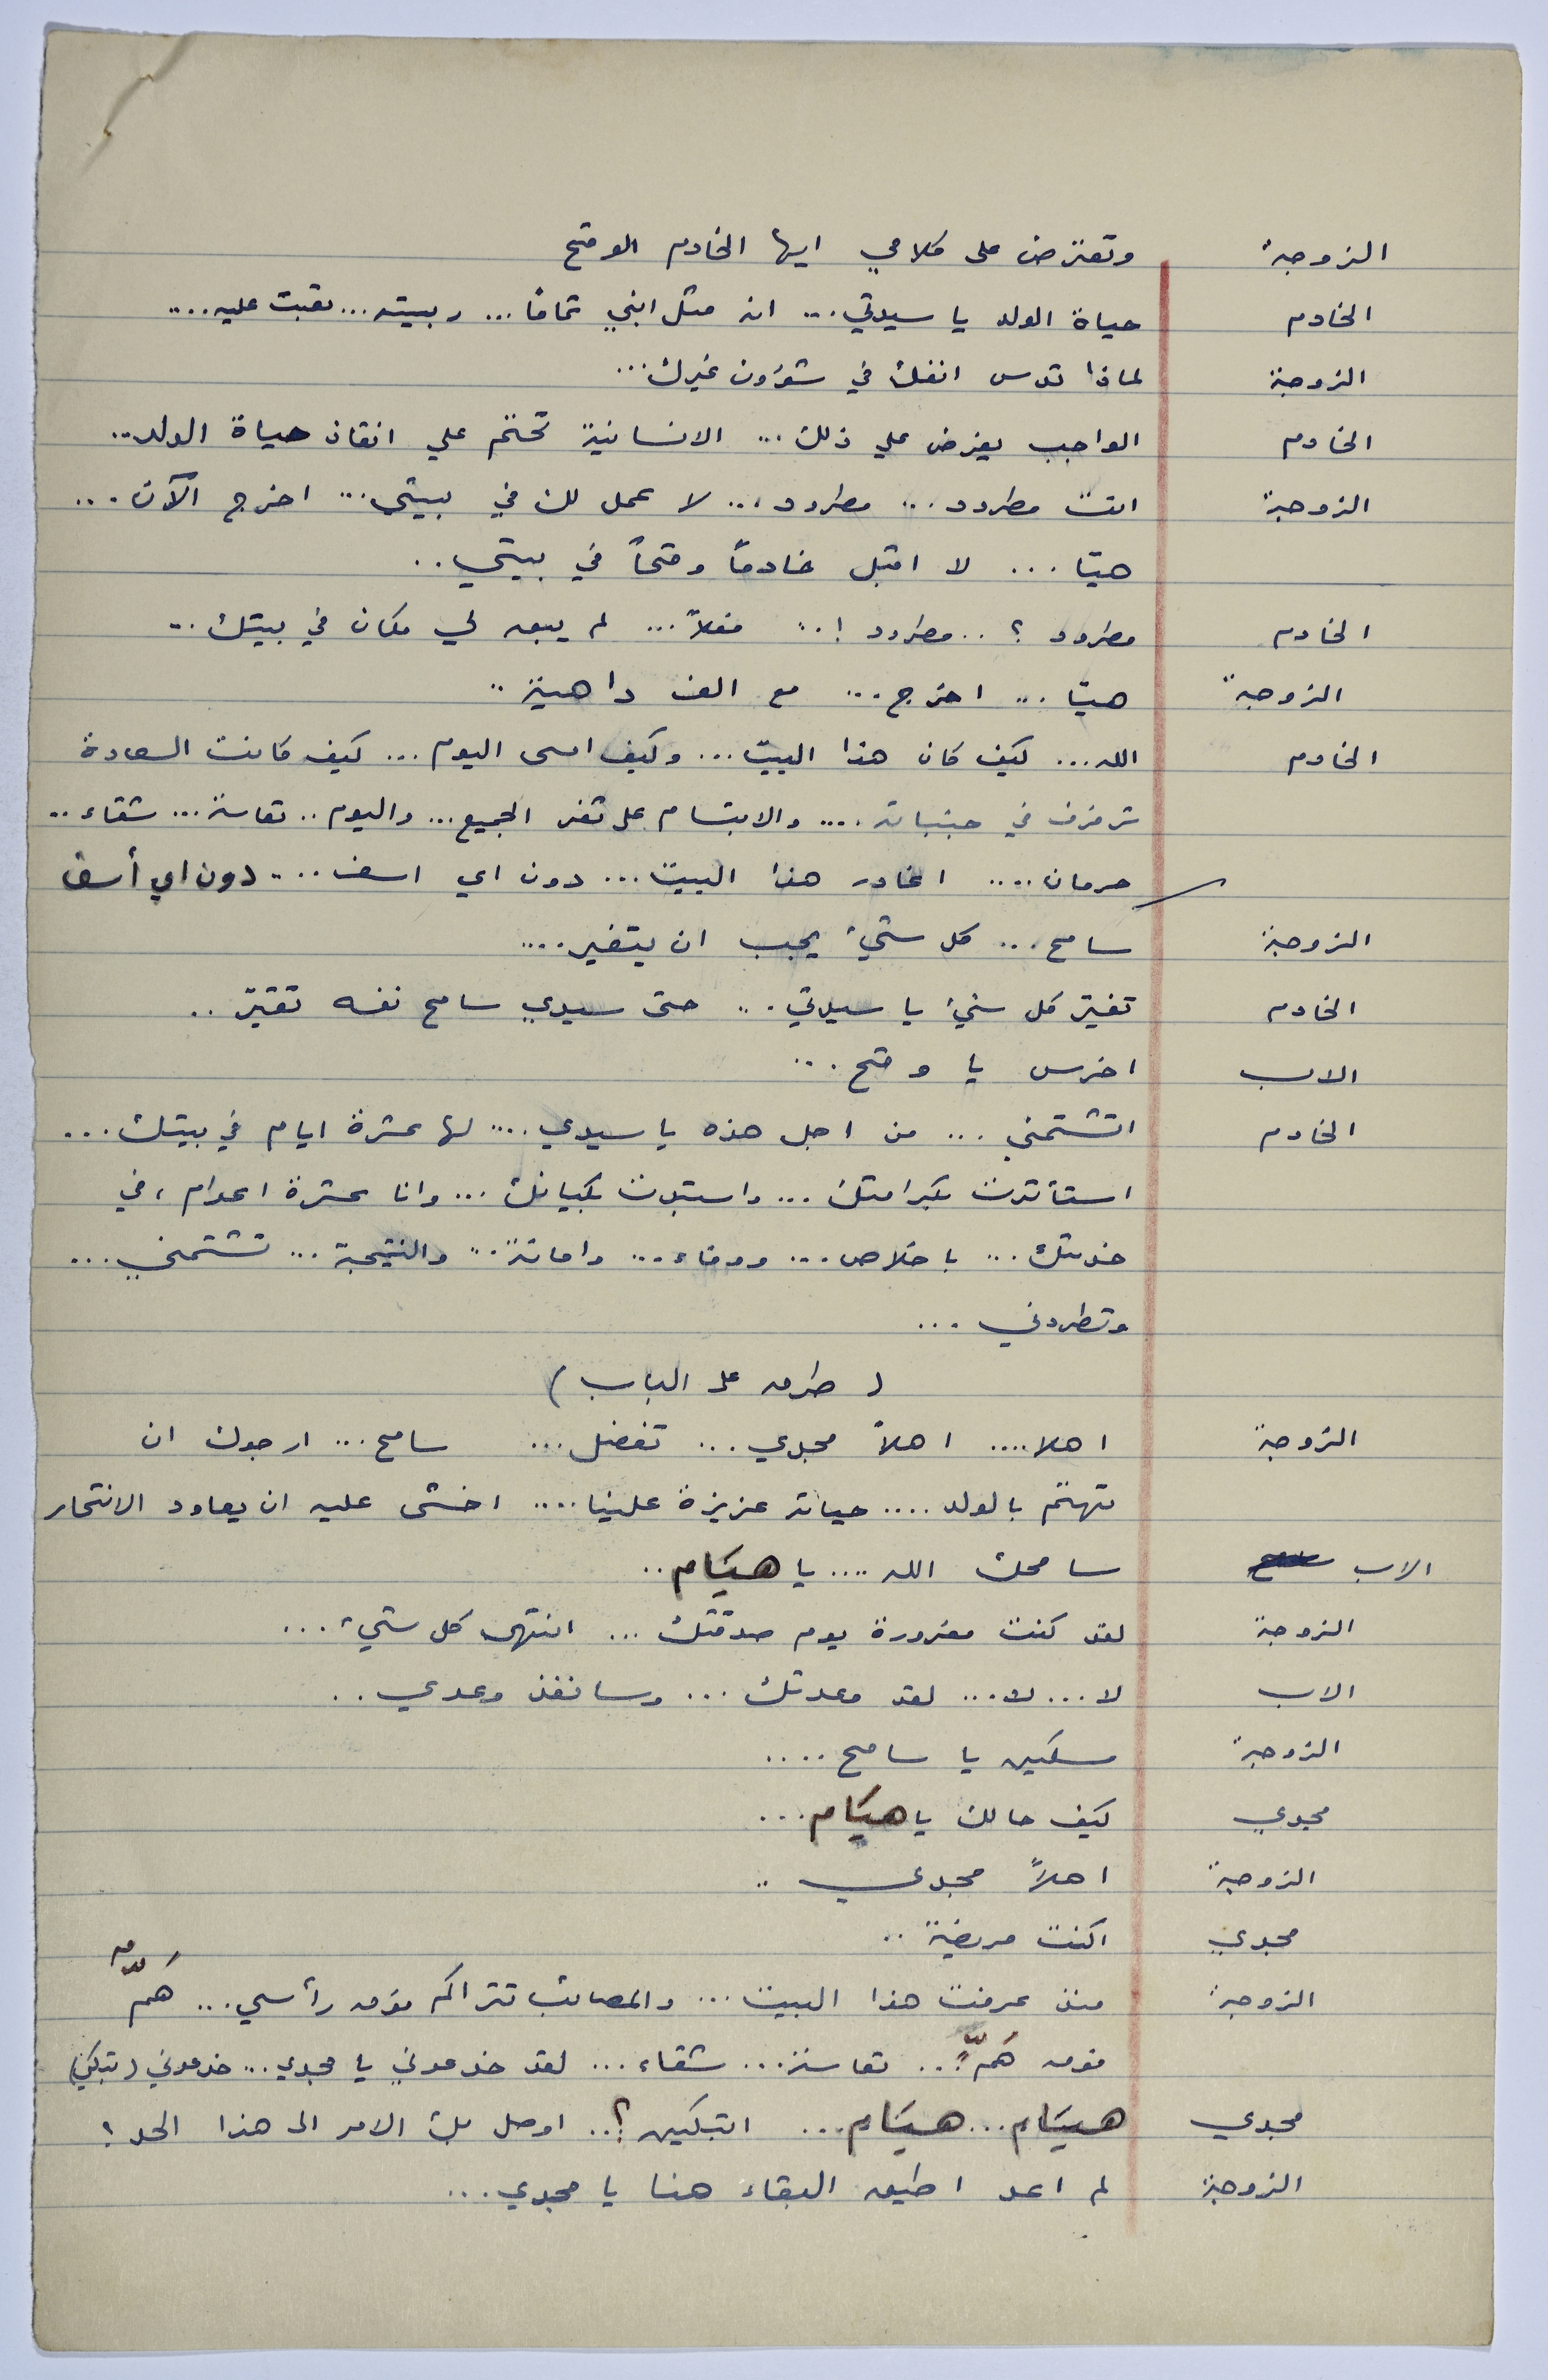 الزوجة وتعترض على كلامي ايها الخادم الوقح
الخادم حياة الولد يا سيدتي... انه مثل ابني تماماً... ربيته... تعبت عليه....
الزوجة لماذا تدس انفك في شؤون غيرك...
الخادم الواجب يفرض علي ذلك... الانسانية تحتم علي انقاذ حياة الولد..
الزوجة انت مطرود... مطرود... لا عمل لك في بيتي... اخرج الآن...
هيّا... لا اقبل خادماً وقحاً في بيتي..
الخادم مطرود ؟.. مطرود !.. فعلاً... لم يبق لي مكان في بيتك..
الزوجة هيّا... اخرج... مع الف داهية..
الخادم الله... كيف كان هذا البيت... وكيف امسى اليوم... كيف كانت السعادة
ترفرف في جنباته.... والابتسام على ثغر الجميع... واليوم.. تعاسة... شقاء..
حرمان.... اغادر هذا البيت... دون اي اسف.... دون اي أسف
الزوجة سامح... كل شيء يجب ان يتغير....
الخادم تغيّر كل شيء يا سيدتي... حتى سيدي سامح نفسه تغيّر..
الاب اخرس يا وقح...
الخادم اتشتمني... من اجل هذه يا سيدي.... لها عشرة ايام في بيتك...
استأثرت بكرامتك... واستبدت بكيانك... وانا عشرة اعوام، في
خدمتك... باخلاص... ووفاء... وامانة... والنتيجة... تشتمني...
وتطردني...
( طرق على الباب )
الزوجة اهلا.... اهلاً مجدي... تفضل... سامح... ارجوك ان
تهتم بالولد.... حياته عزيزة علينا.... اخشى عليه ان يعاود الانتحار
الاب سامحك الله.... يا هيَام..
الزوجة لقد كنت مغرورة يوم صدقتك... انتهى كل شيء...
الاب لا... لا... لقد وعدتك... وسانفذ وعدي..
الزوجة مسكين يا سامح....
مجدي كيف حالك يا هيَام...
الزوجة اهلاً مجدي..
مجدي اكنت مريضة..
الزوجة منذ عرفت هذا البيت... والمصائب تتراكم فوق رأسي... هَمٌّ
فوق هَمٍّ... تعاسة... شقاء... لقد خدعوني يا مجدي... خدعوني (تبكي)
مجدي هيَام... هيَام... اتبكين؟.. اوصل بك الامر الى هذا الحد ؟
الزوجة لم اعد اطيق البقاء هنا يا مجدي...